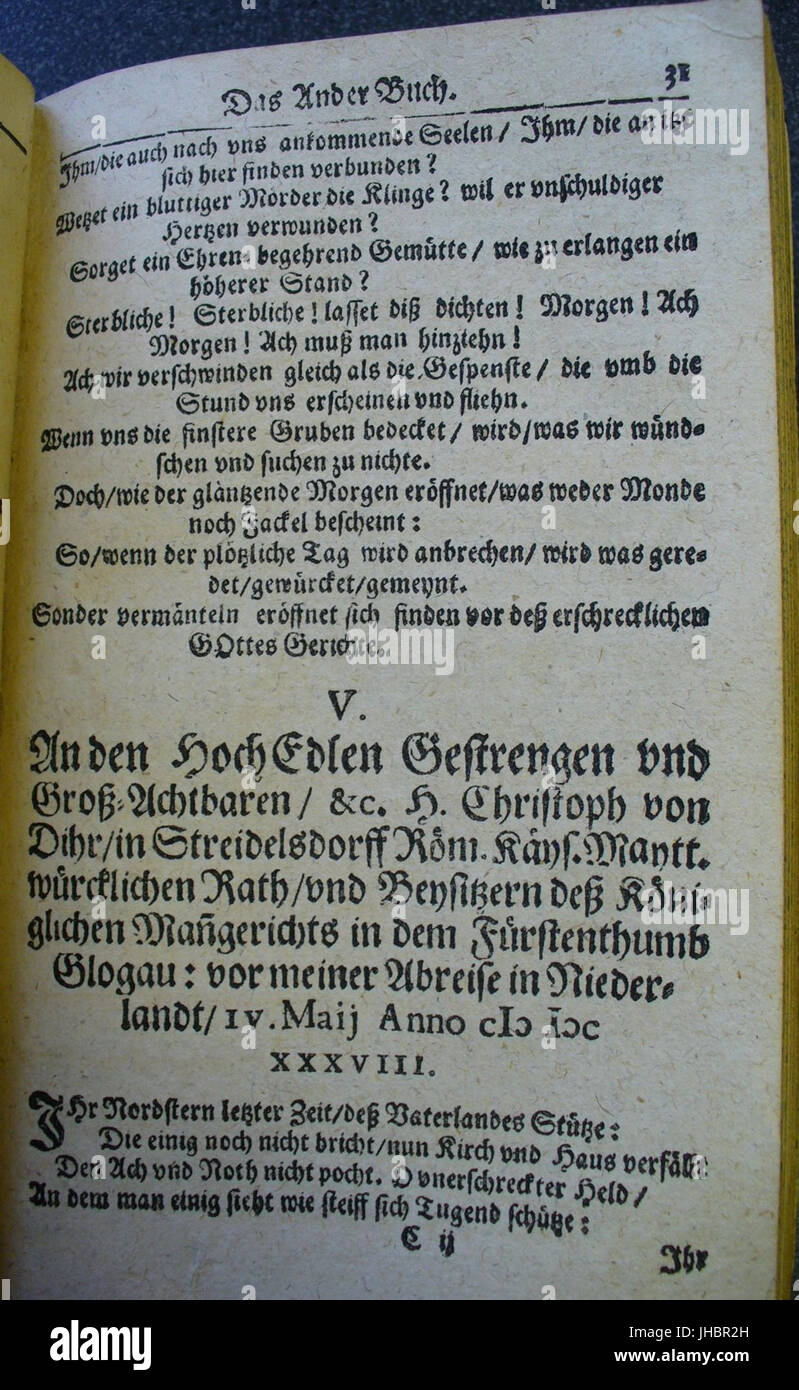 Das Ander Buch. 31
Ihm/die auch nach vns ankommende Seelen/ Ihm/ die
sich hier finden verbunden?
Wetzet ein bluttiger Mörder die Klinge? wil er vnschuldiger
Hertzen verwunden?
Sorget ein Ehren-begehrend Gemütte/ wie zu erlangen ein
höherer Stand?
Sterbliche! Sterbliche! lasset diß dichten! Morgen! Ach
Morgen! Ach muß man hinziehn!
Ach wir verschwinden gleich als die Gespenste/ die vmb die
Stund vns erscheinen vnd fliehn.
Wenn vns die finstere Gruben bedecket/ wird/was wir wünd-
schen vnd suchen zu nichte.
Doch/wie der gläntzende Morgen eröffnet/was weder Monde
noch Fackel bescheint:
So/wenn der plötzliche Tag wird anbrechen/ wird was gere-
det/gewürcket/gemeynt.
Sonder vermänteln eröffnet sich finden vor deß erschrecklichen
GOttes Gerichte.
V.
An den HochEdlen Gestrengen vnd
Groß-Achtbaren/ &c. H. Christoph von
Dihr/in Streidelsdorff Röm. Käys. Maytt.
würcklichen Rath/vnd Beysitzern deß Köni-
glichen Mañgerichts in dem Fürstenthumb
Glogau: vor meiner Abreise in Nieder-
landt/ IV. Maij Anno cIɔ Iɔc
XXXVIII.
IHr Nordstern letzter Zeit/deß Vaterlandes Stütze:
Die einig noch nicht bricht/nun Kirch vnd Haus verfällt:
Der Ach vnd Noth nicht pocht. O vnerschreckter Held/
An dem man einig siht wie steiff sich Tugend schütze:
C ij
Ihr
alamy
alamy
Image ID: JHBR2H
www.alamy.com